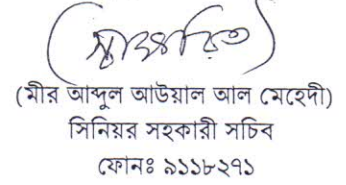 (স্বাক্ষরিত)
(মীর আব্দুল আউয়াল আল মেহেদী)
সিনিয়র সহকারী সচিব
ফোনঃ ৯১১৮২৭১